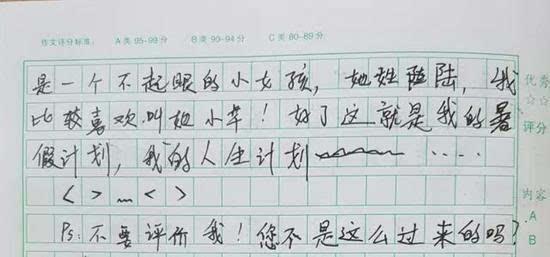 作文评分标准： A类 95-99分 B类 90-94分 C类 80-89分
是一个不起眼的小女孩，她姓陆，我
比较喜欢叫她小草！好了这就是我的暑
假计划，我的人生计划 ····
<>…<>
Ps：不要评价我！您不是这么过来的吗？
优秀
☆☆
评分
内容
A
B